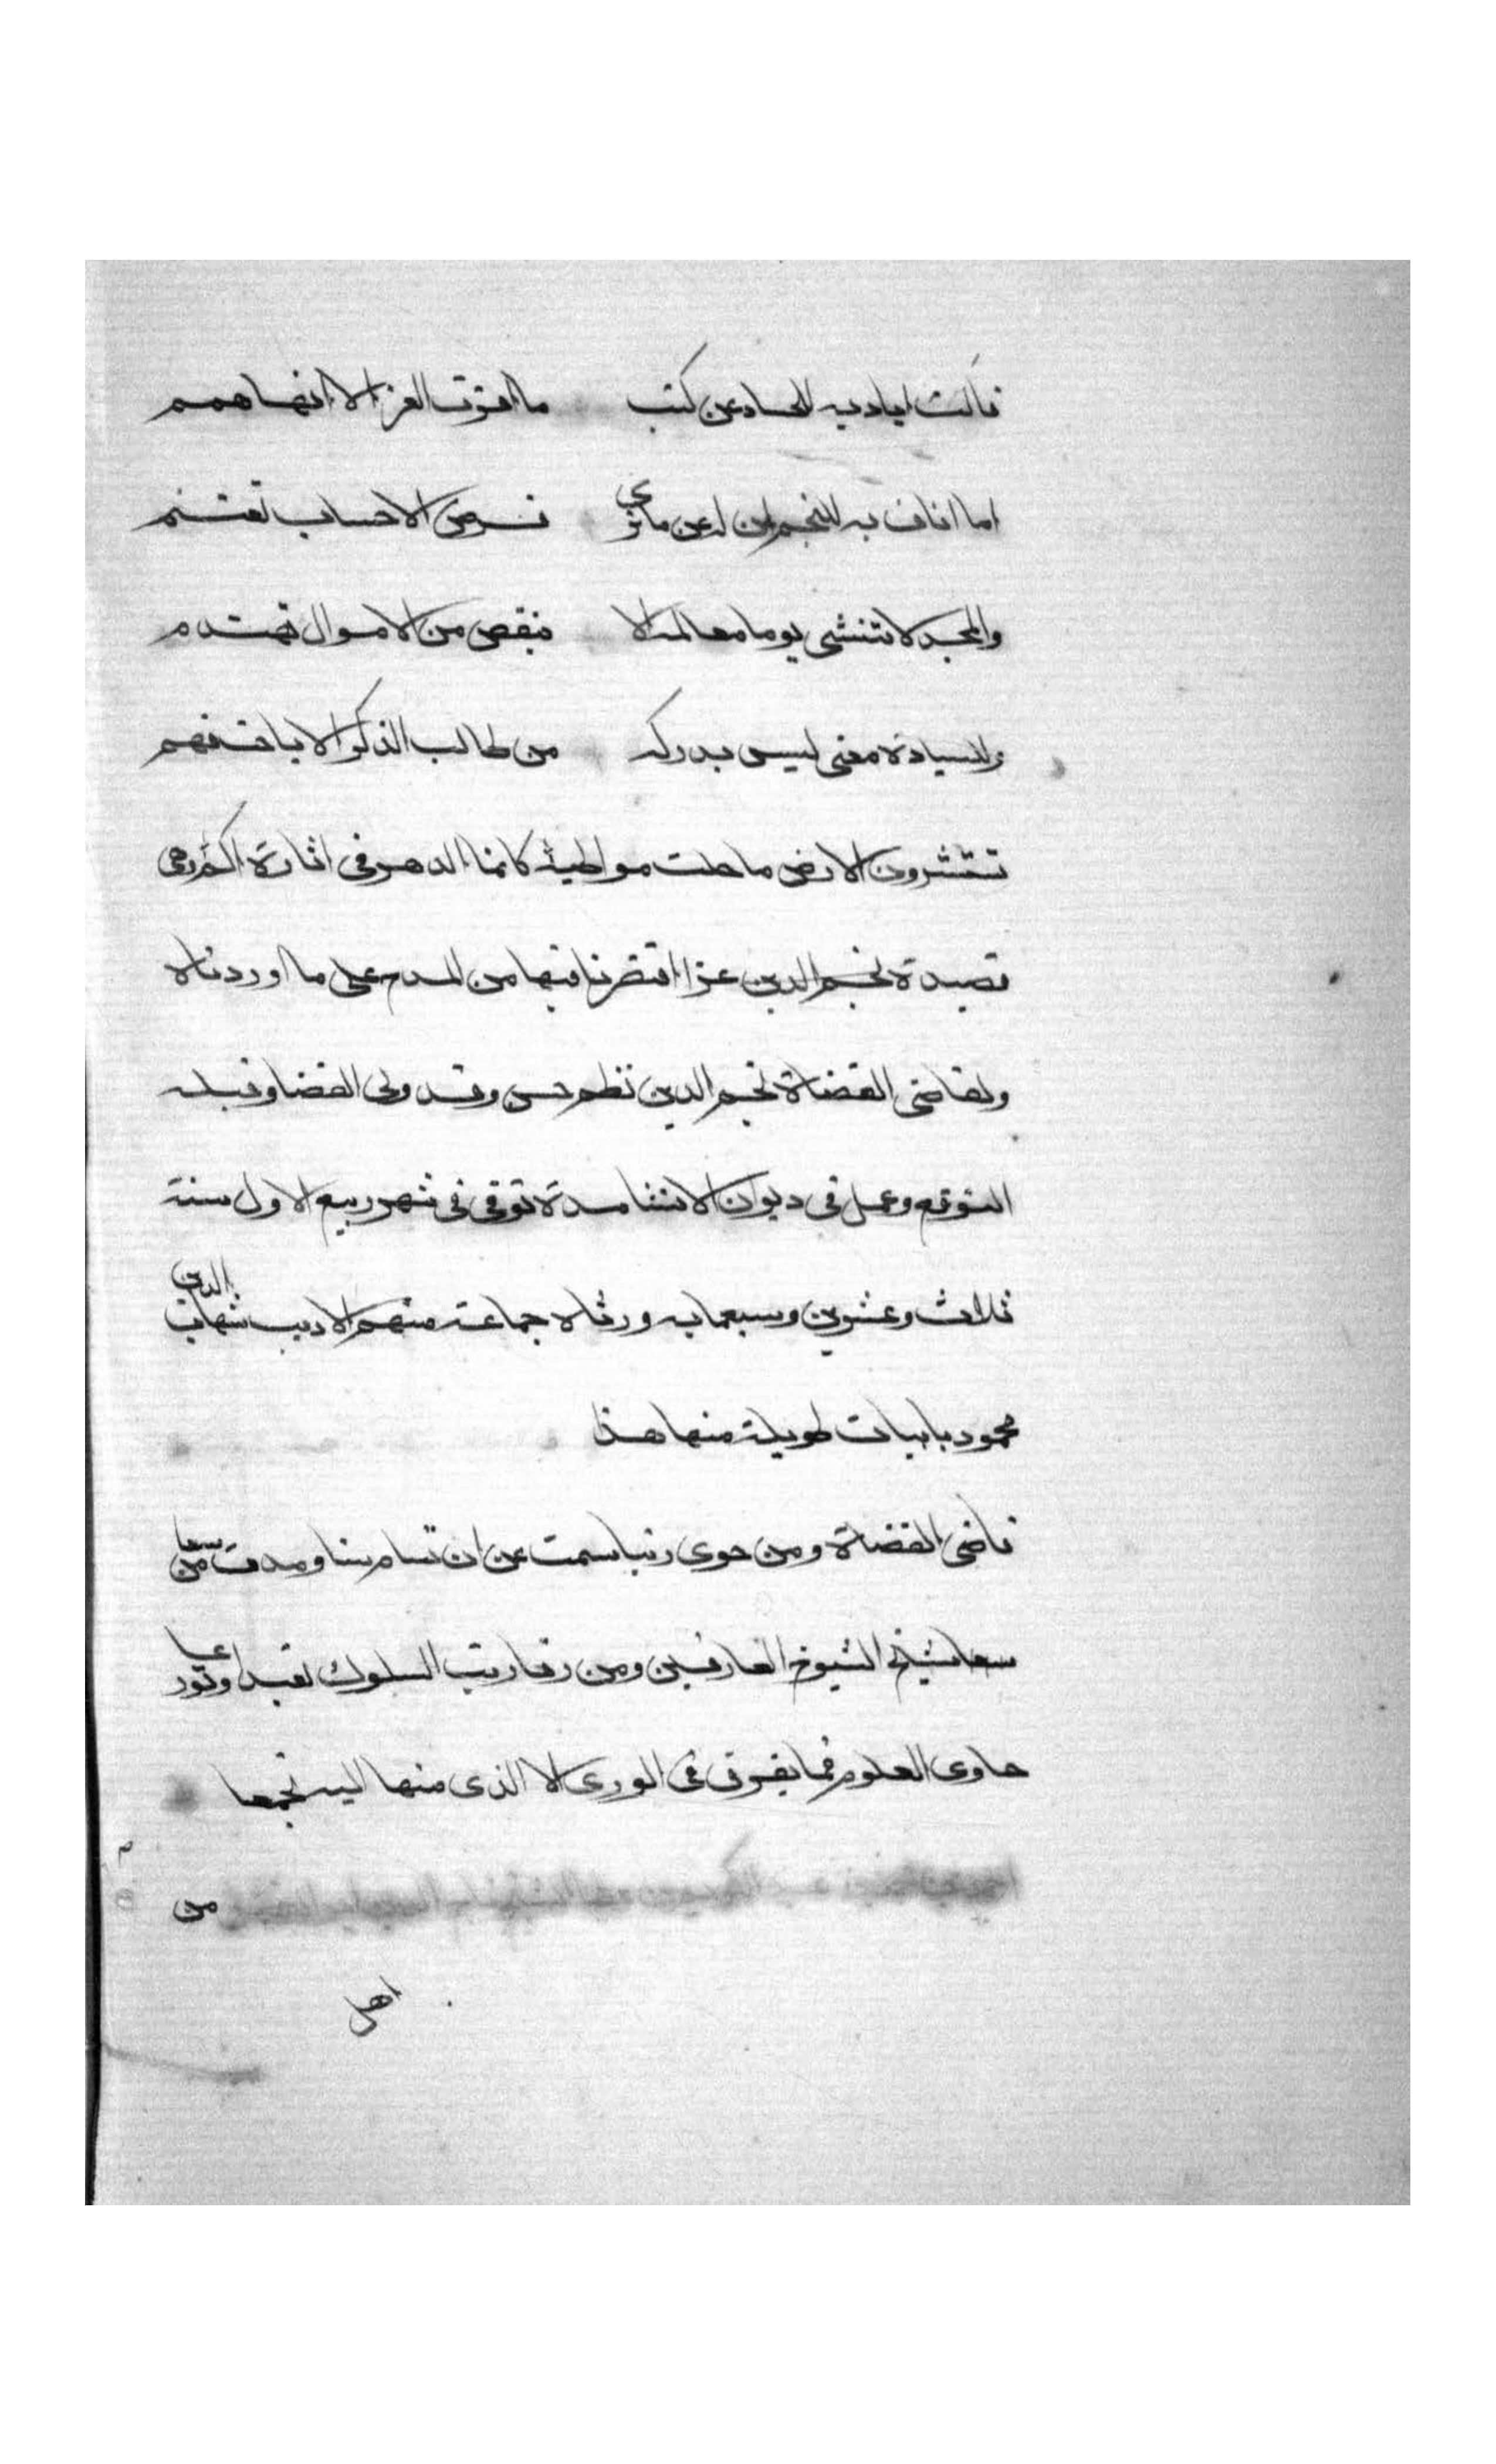 قالت اياديه للحساد عن كثب ما اقرب العز الا انها همم
اما اناف به للنجم ان له عن ما ترى فرض الاحساب تغتنم
والمجد لا تنشى يوما معالمه الا بنقص من الاموال تهتدم
وللسيادة معنى ليس يدركه من طالب الذكر الا باحث فهم
تستشرف الارض ما حلت مواطيه كانما الدهر في اثارة الكرم وهي
قصيدة لنجم الدين غرا اقتصرنا فيها من المدح على ما اوردناه
ولقاضي القضاة نجم الدين نظم حسن وقد ولى القضا وقبله
التوقيع وعمل في ديوان الانشا مدة توفي في شهر ربيع الاول سنة
ثلاث وعشرين وسبعمايه ورثاه جماعة منهم الاديب شهاب الدين
محمود بابيات طويلة منها هذا
قاضي القضاة ومن حوى رتبا سمت عن ان تسام سنا ومدت من سعا
سعا شيخ الشيوخ العارفين ومن رقا رتب السلوك تعبدا وتورعا
حاوى العلوم فما يفرق في الورى الا الذى منها اليه تجمعا
من
اهل